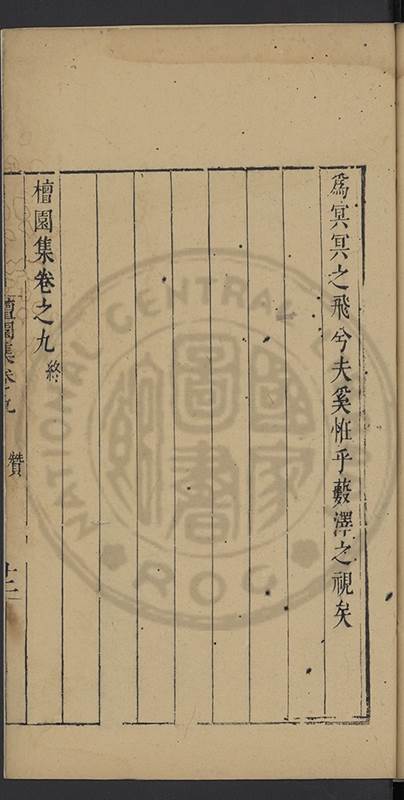 為冥冥之飛兮夫奚惟乎藪澤之視矣
檀園集卷之九終
檀園集卷九
贊
十二
NATIONAL CENTRAL LIBRARY
國家圖書館
ROC